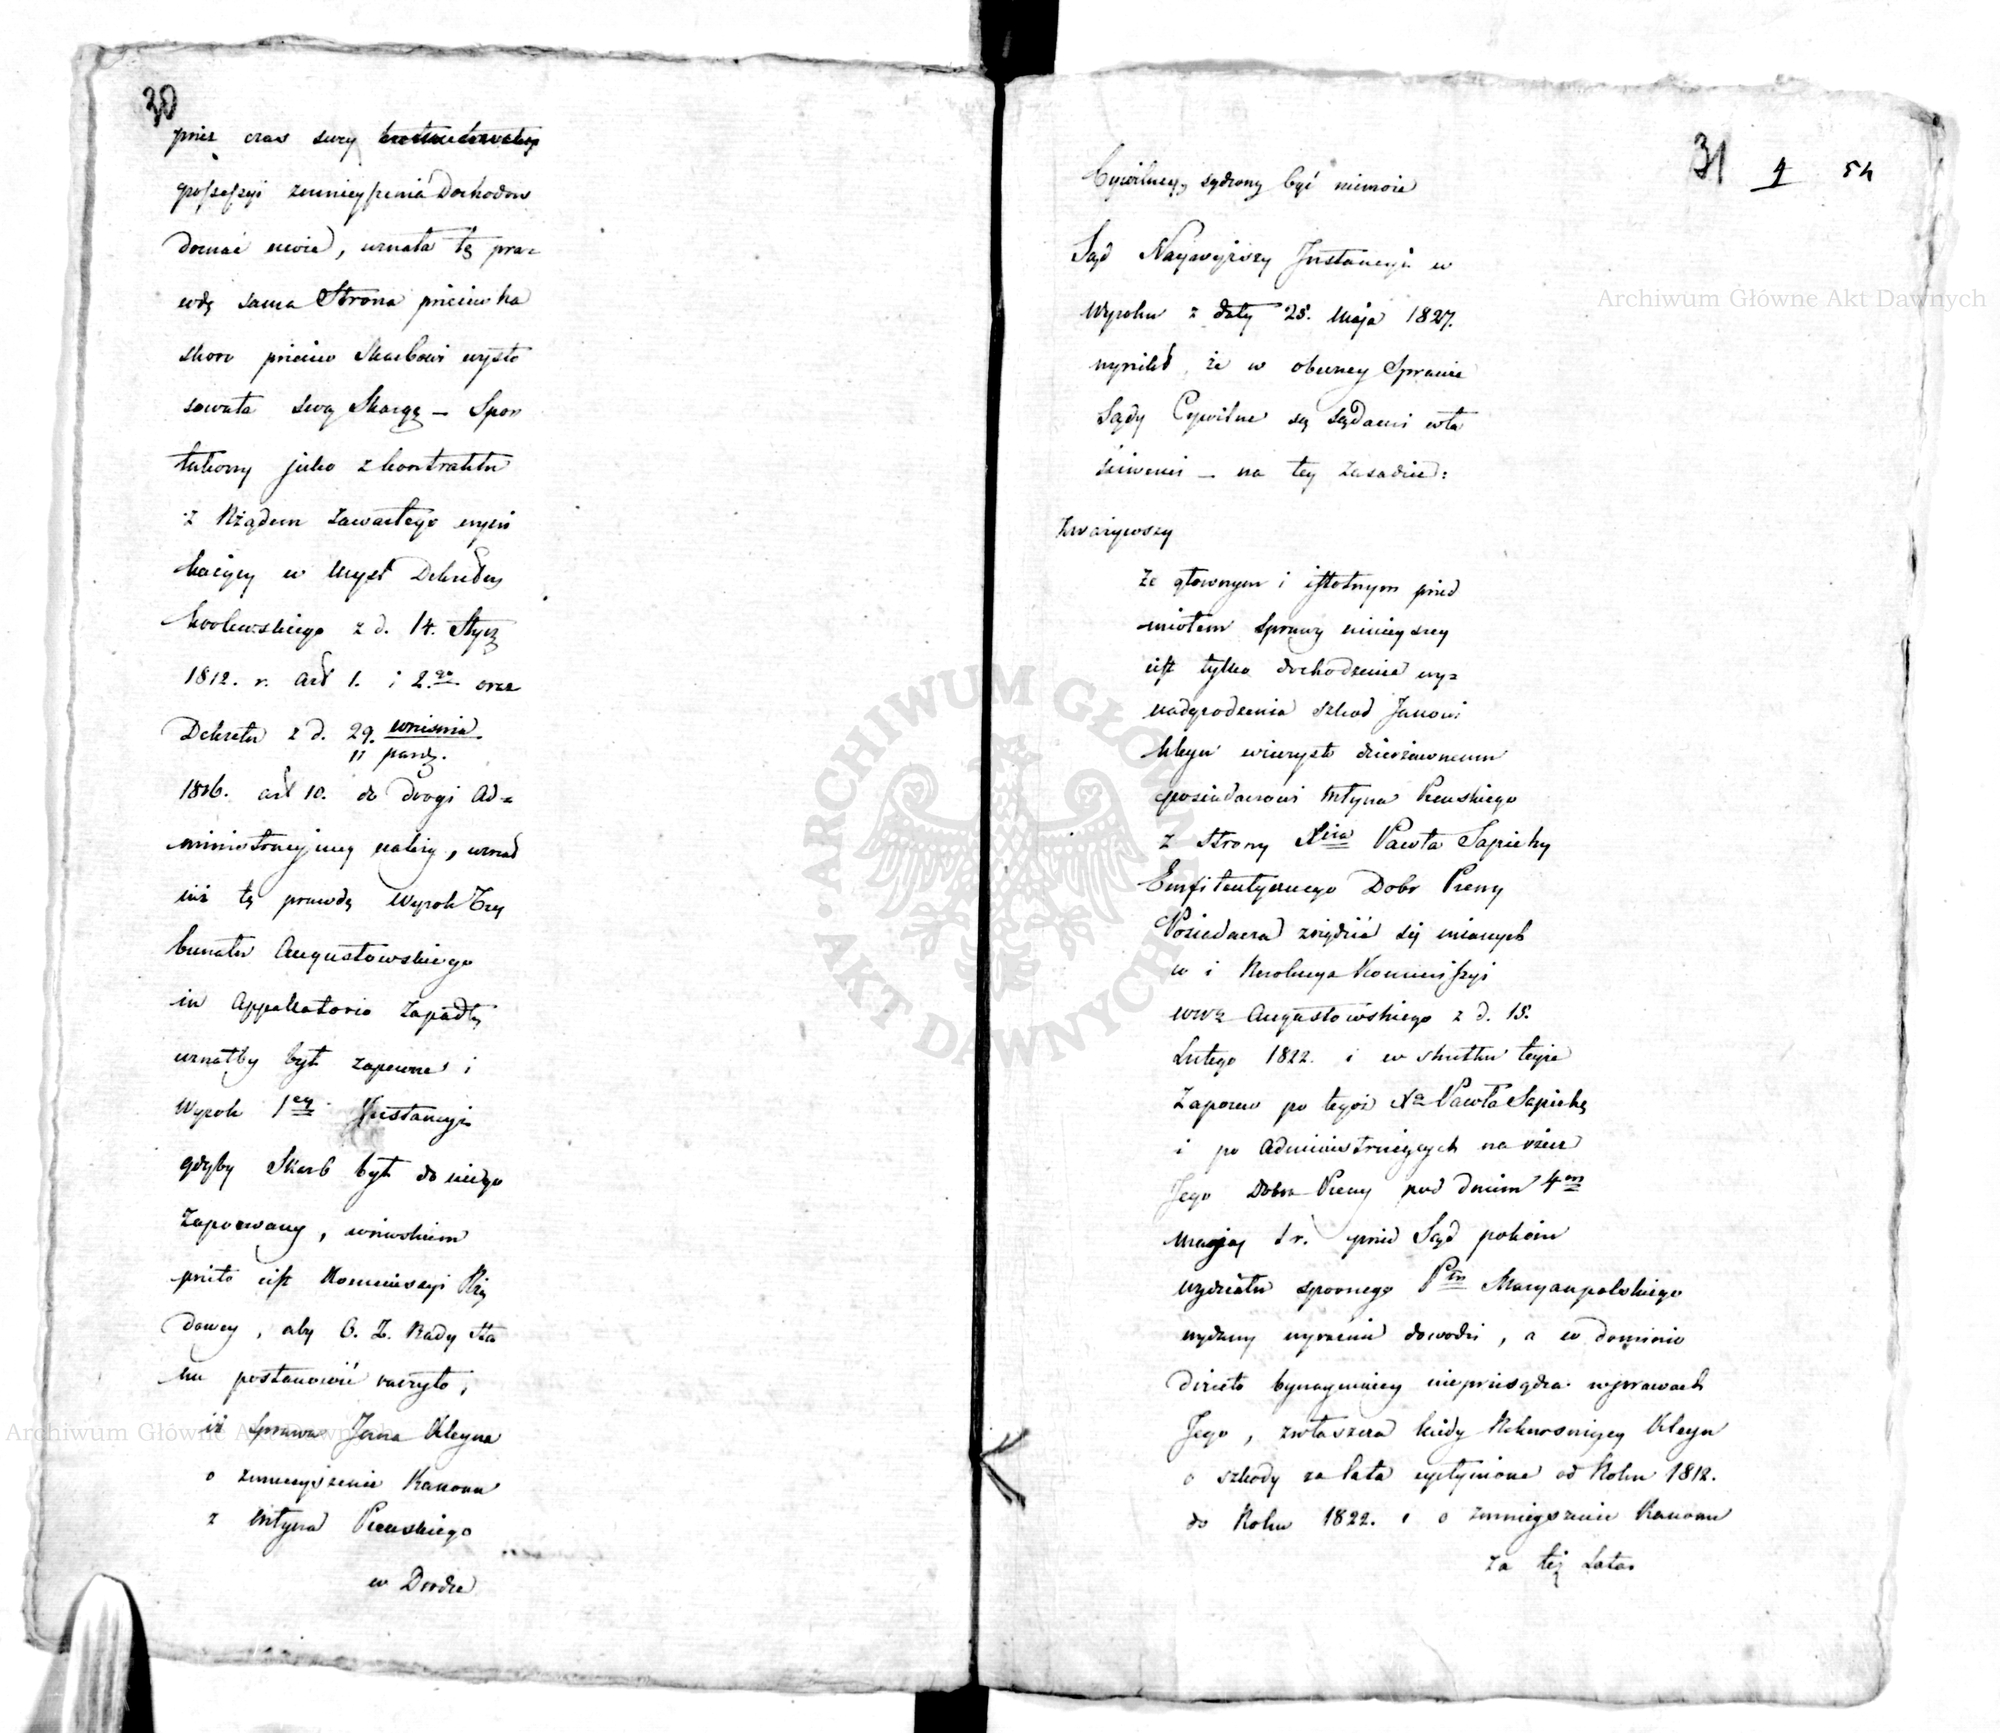 30
przez czas swey
possessyi zmnieyszenia Dochodow
doznać mogł, uznała tę pra=
wdę sama Strona przeciwna
skoro przeciw Skarbowi wysto
sowała swą Skargę – Spor
takowy jako z kontraktu
z Rządem zawartego wyni
kaiący w myśl Dekretu
Krolewskiego z d. 14. Stycz
1812. r. art 1. i 2.go oraz
Dekretu z d. 29. września
11 pazdz.
1816. art 10. do drogi Ad=
ministracyiney należy, uznał
iuż tę prawdę Wyrok Try
bunału Augustowskiego
in Appellatorio zapadły
uznałby był zapewne i
Wyrok 1ey Instancyi
gdyby Skarb był do niego
Zapozwany, wnioskiem
przeto iest Kommissyi Rzą
dowey, aby O. Z. Rady Sta
nu postanowić raczyło,
iż sprawa Jana Kleyna
o zmnieyszenie Kanonu
z młyna Prenskiego
w Drodze
31 4 54
Cywilney, sądzony być niemoże
Sąd Naywyższy Instancyi w
Wyroku z daty 25. Maja 1827.
wyrzekł, że w obecney Sprawie
Sądy Cywilne są sądami wła
ściwemi – na tey zasadzie:
Zważywszy
że głownym i istotnym przed
miotem sprawy ninieyszey
iest tylko dochodzenie wy=
nadgrodzenia szkod Janowi
Kleyn wieczysto dzierżawnemu
posiadaczowi Młyna Prenskiego
z strony Xcia Pawła Sapiehy
Emfiteutycznego Dobr Preny
Posiadacza zrządzić się mianych
w i Rezolucya Kommissyi
wwa Augustowskiego z d. 15.
Lutego 1822. i w skutku teyże
Zapozew po tegoż Xa Pawła Sapiehę
i po Administruiących na rzecz
Jego Dobra Preny pod dniem 4m
maja t r. przed Sąd pokoiu
wydziału spornego Ptu Maryampolskiego
wydany wyraźnie dowodzi, a w dominio
directo bynaymniey nieprzesądza w prawach
Jego, zwłaszcza kiedy Rekursuiący Kleyn
o szkody za lata upłynione od Roku 1812.
do Roku 1822. i o zmnieyszenie Kanonu
za też Lata
Archiwum Główne Akt Dawnych
Archiwum Główne Akt Dawnych
ARCHIWUM GŁÓWNE AKT DAWNYCH